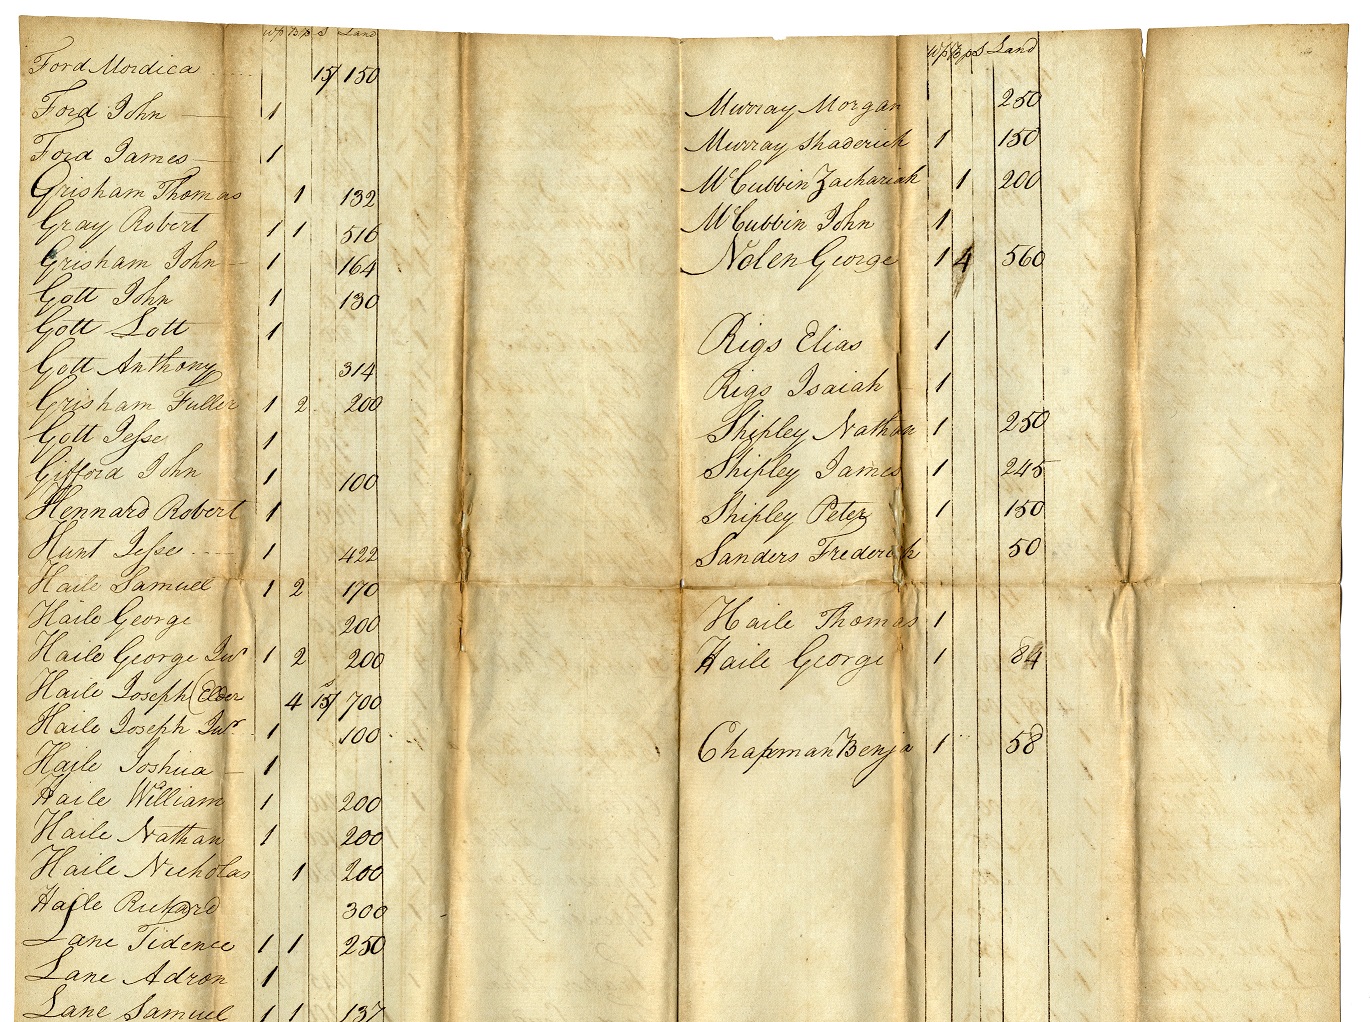 Wp Bp S Land
Ford Mordica 15/ 150
Ford John 1
Ford James 1
Grisham Thomas 1 132
Gray Robert 1 1 516
Grisham John 1 164
Gott John 1 130
Gott Lott 1
Gott Anthony 314
Grisham Fuller 1 2 200
Gott Jesse 1
Gifford John 1 100
Hennard Robert 1
Hunt Jesse 1 422
Haile Samuel 1 2 170
Haile George 200
Haile George Junr 1 2 200
Haile Joseph (Elder 4 15/ 700
Haile Joseph Junr 1 100
Haile Joshua 1
Haile William 1 200
Haile Nathan 1 200
Haile Nicholas 1 200
Haile Richard 300
Lane Tidence 1 1 250
Lane Adron 1
Lane Samuel 1 1 137
Wp Bp S Land
Murray Morgan 250
Murray Shaderick 1 150
McCubbin Zachariah 1 200
McCubbin John 1
Nolen George 1 4 560
Rigs Elias 1
Rigs Isaiah 1
Shipley Nathan 1 250
Shipley James 1 245
Shipley Peter 1 150
Sanders Frederick 50
Haile Thomas 1
Haile George 1 84
Chapman Benja 1 58